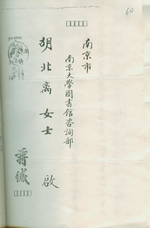 60
南京市
南京大學圖書館咨詢部
胡北离女士 啟
蒋缄